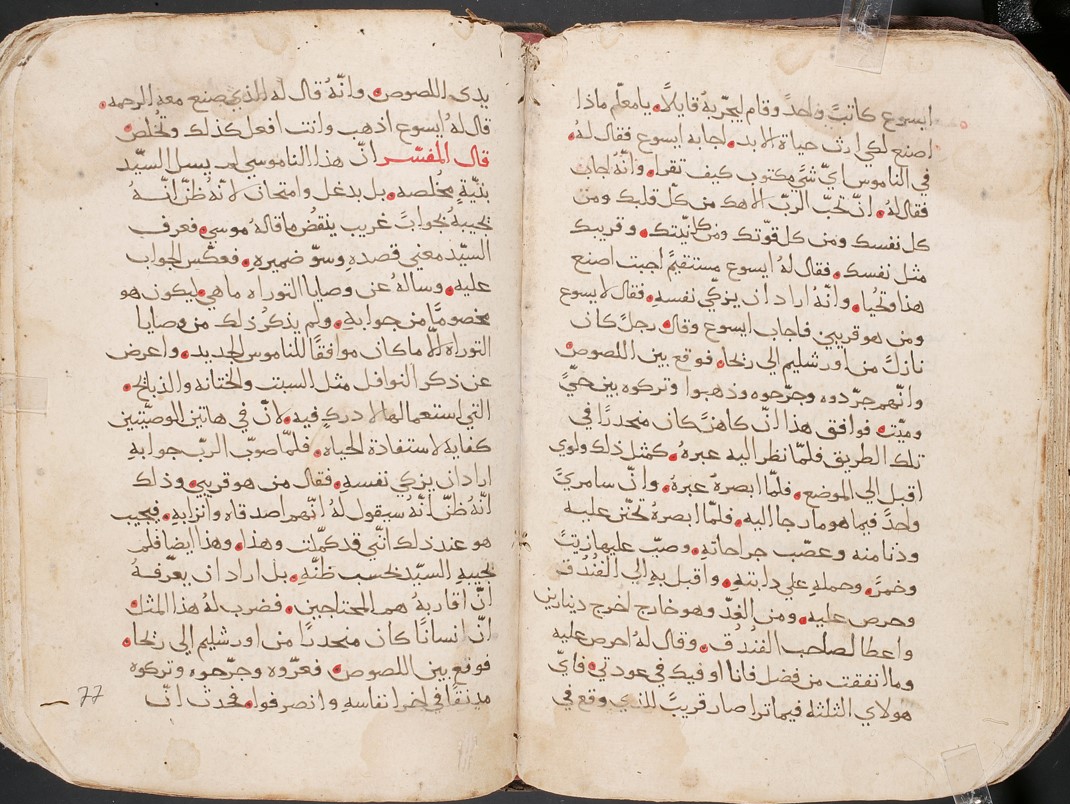 ايسوع كاتبً واحدً وقام ليجرّبهُ قايلاً. يامعلّم ماذا
اصنع لكي ارث حياة الابد. اجابه ايسوع فقال لهُ.
في الناموس ايّ شيً مكتوب كيف تقرا. وانّهُ اجاب
فقال لهُ. ان تحبّ الربّ الاهك من كلّ قلبك ومن
كل نفسك ومن كل قوّتك ومن كل نيّتك. وقريبك
مثل نفسك. فقال لهُ ايسوع مستقيمً اجبت اصنع
هذا وتحيا. وانّهُ اراد ان يزكّي نفسهِ. فقال لايسوع
ومن هو قريبي فاجاب ايسوع وقال. رجلً كان
نازلً من اورشليم الي ريحا. فوقع بين اللصوص
وانّهم جرّدوه وجرّحوه وذهبوا وتركوه بين حيًّ
وميّت. فوافق هذا انّ كاهنً كان منحدرًا في
تلك الطريق فلمّا نظر اليه عبرهُ. كمثل ذلك ولوي
اقبل الي الموضع. فلمّا ابصرهُ عبرهُ. وانّ سامريً
واحدً فيما هو مار جا اليه. فلمّا ابصرهُ تحنّن عليه
ودنا منه وعصّب جراحاتهِ. وصبّ عليها زيتً
وخمرً. وحملهِ علي دابتهِ. واقبل بهِ الي الفُندُق
وحرص عليهِ. ومن الغدّ وهو خارج اخرج دينارين
واعطا لصاحب الفندُق. وقال لهُ احرص عليه
وما انفقت من فضل فانا اوفيك في عودتي. فايّ
هولاي الثلثة فيما ترا صار قريبً للذي وقع في
يدي اللصوص. وانّهُ قال لهُ الذي صنع معهِ الرحمه.
قال لهُ ايسوع اذهب وانت افعل كذلك وتخلص
قال المفسّر انّ هذا الناموسي لم يسل السيّد
بنيّةٍ مخُلصه. بل بدغل وامتحان لانّه ظنّ انّهُ
يجيبهُ بجوابً غريب ينقُض ما قالهُ موسي. فعرف
السيّد معني قصدهِ وسوّ ضميرهِ. فعكّس الجواب
عليه. وسالهُ عن وصايا التوراه ما هي. ليكون هو
مخصومًا من جوابهِ. ولم يذكرُ ذلك من وصايا
التوراه الاّ ما كان موافقًا للناموس الجديد. واعرض
عن ذكر النوافل مثل السبت والختانه والذبايح.
التي استعمالها لا درك فيه. لانّ في هاتين الوصيّتين
كفايه لاستفادة الحياه. فلمّا صوّب الربّ جوابهِ
اراد ان يزكي نفسهِ. فقال من هو قريبي. وذلك
انّهُ ظنّ انّهُ سيقول لهُ انّهم اصدقاه وانزابهِ. فيجيب
هو عند ذلك انّني قد كمّلت وهذا. وهذا ايضا فلم
يجيبهِ السيّد بحسب ظنّهِ. بل اراد ان يعرّفهُ
انّ اقاربهُ هم المحتاجين. فضرب لهُ هذا المثل.
انّ انسانًا كان منحدرًا من اورشليم الي ريحا.
فوقع بين اللصوص. فعرّوه وجرّحوه وتركوه
مدنفًا في اخر انفاسهِ وانصرفوا. فحدث انّ
77